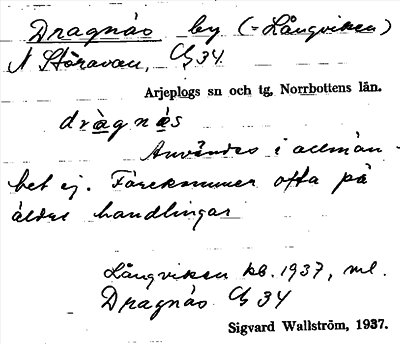 Dragnäs by (= Långviken)
N Storavan, G 34.
Arjeplogs sn och tg, Norrbottens län.
dràgnés
Användes i allmän-
het ej. Förekommer ofta på
äldre handlingar
Långviken kb. 1937, ml.
Dragnäs G 34
Sigvard Wallström, 1937.